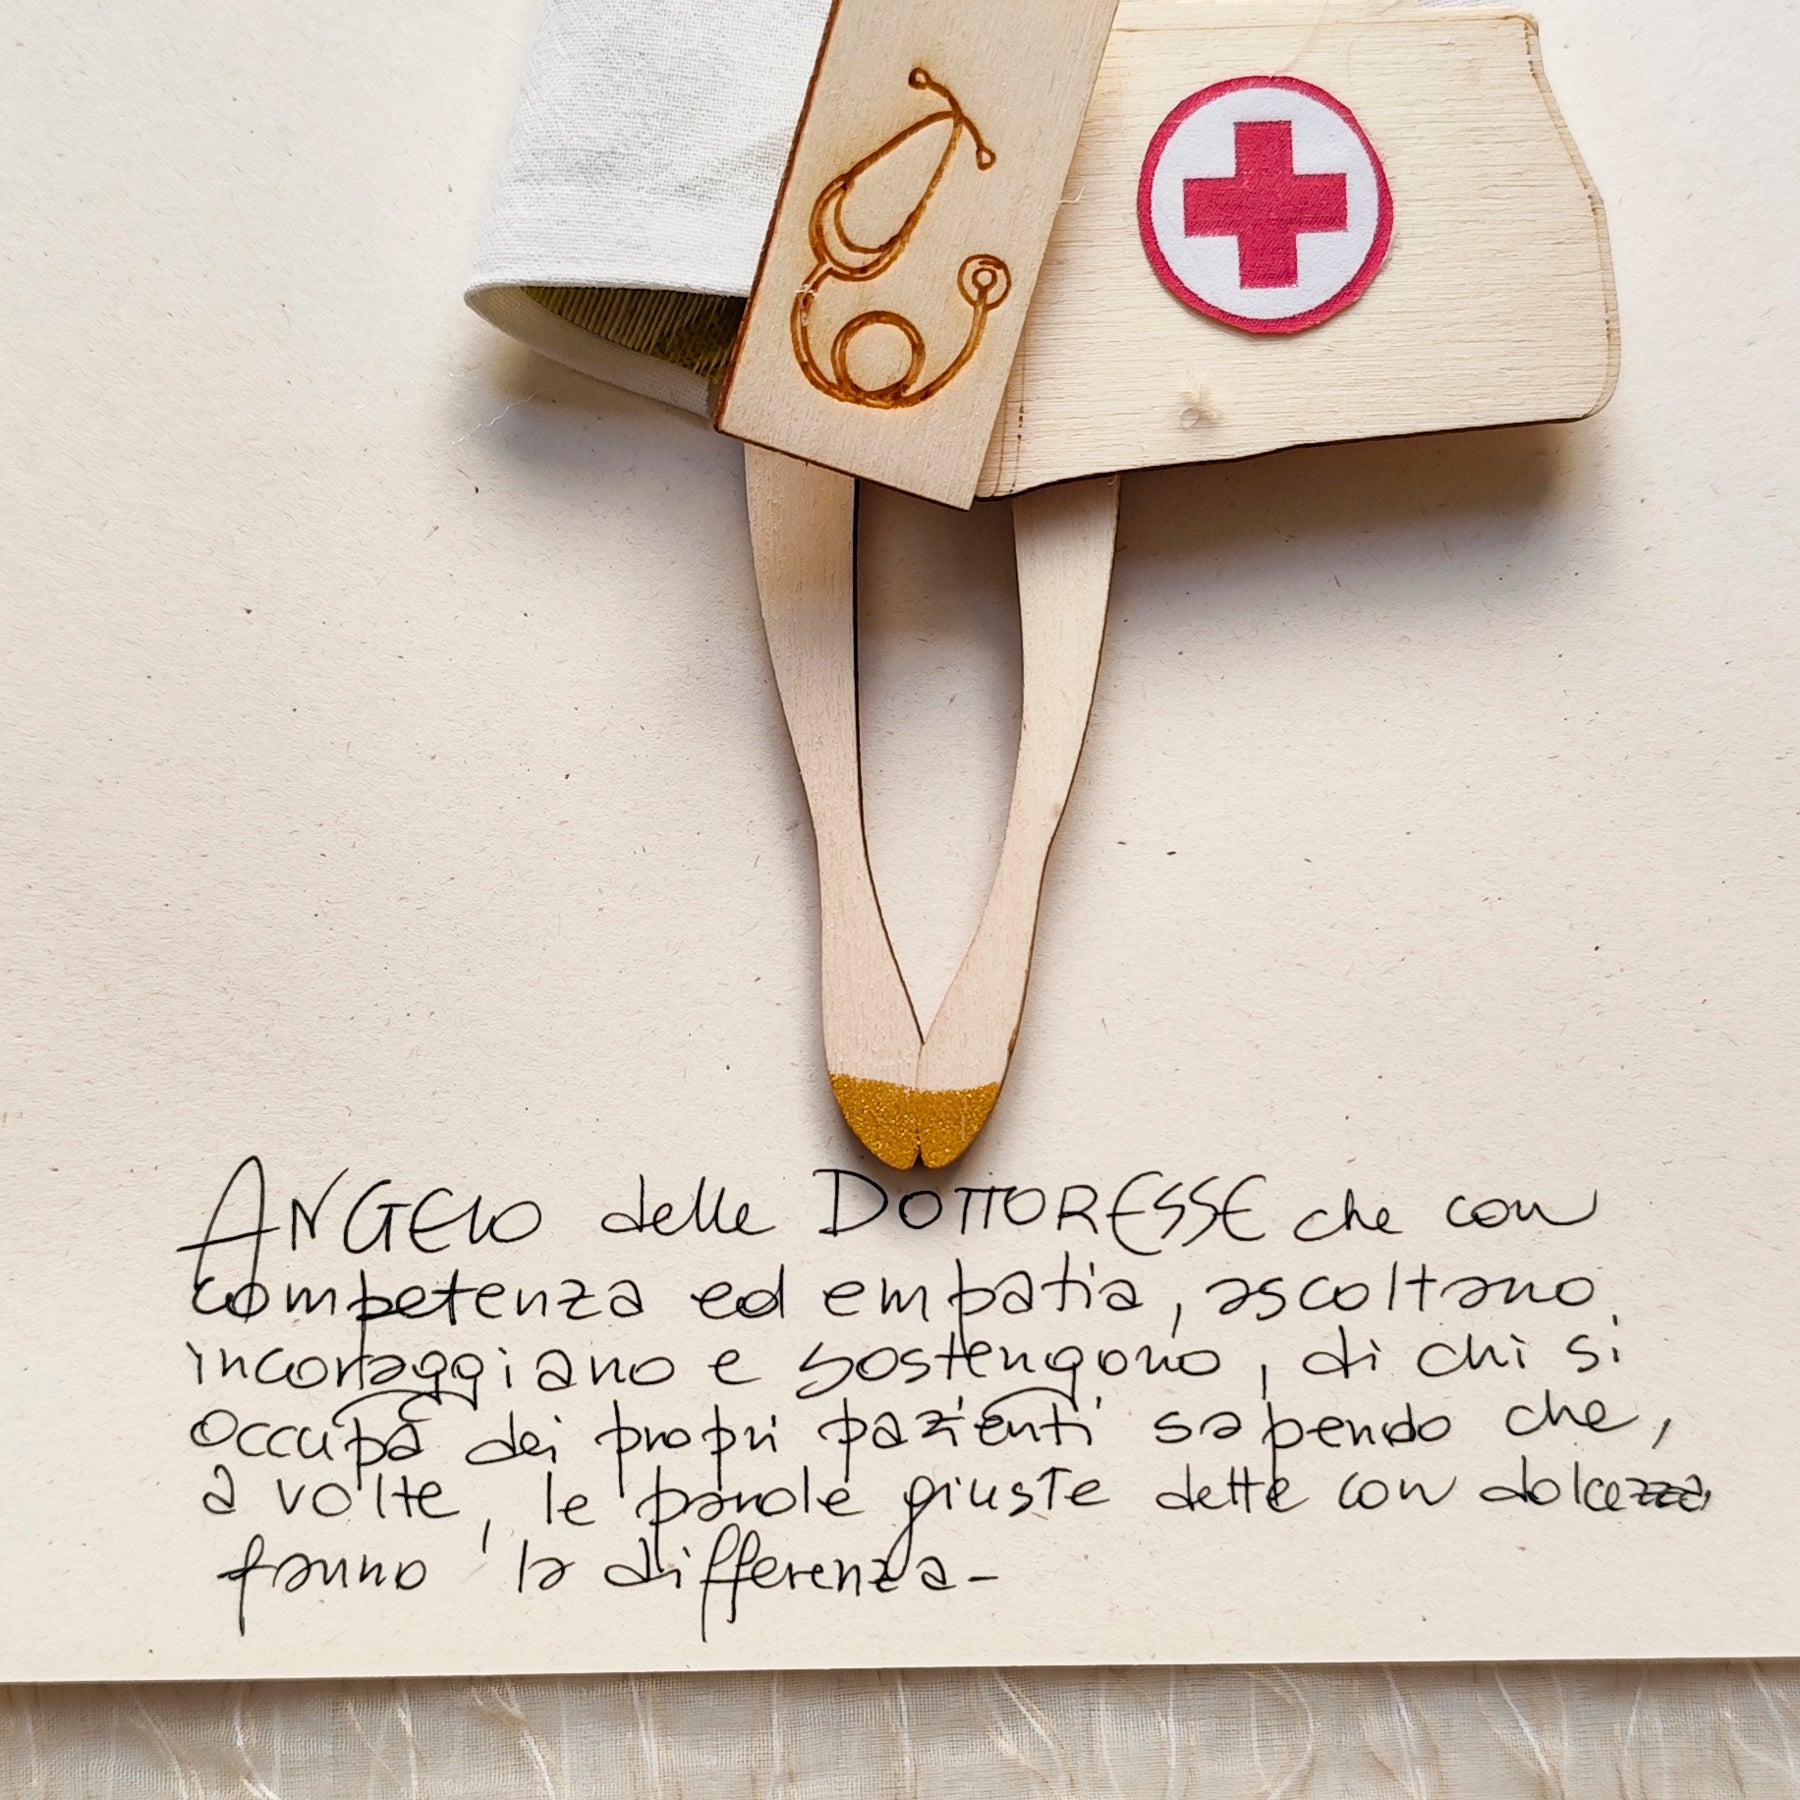 ANGELO delle DOTTORESSE che con
competenza ed empatia, ascoltano
incoraggiano e sostengono, di chi si
occupa dei propri pazienti sapendo che,
a volte, le parole giuste dette con dolcezza
fanno la differenza-